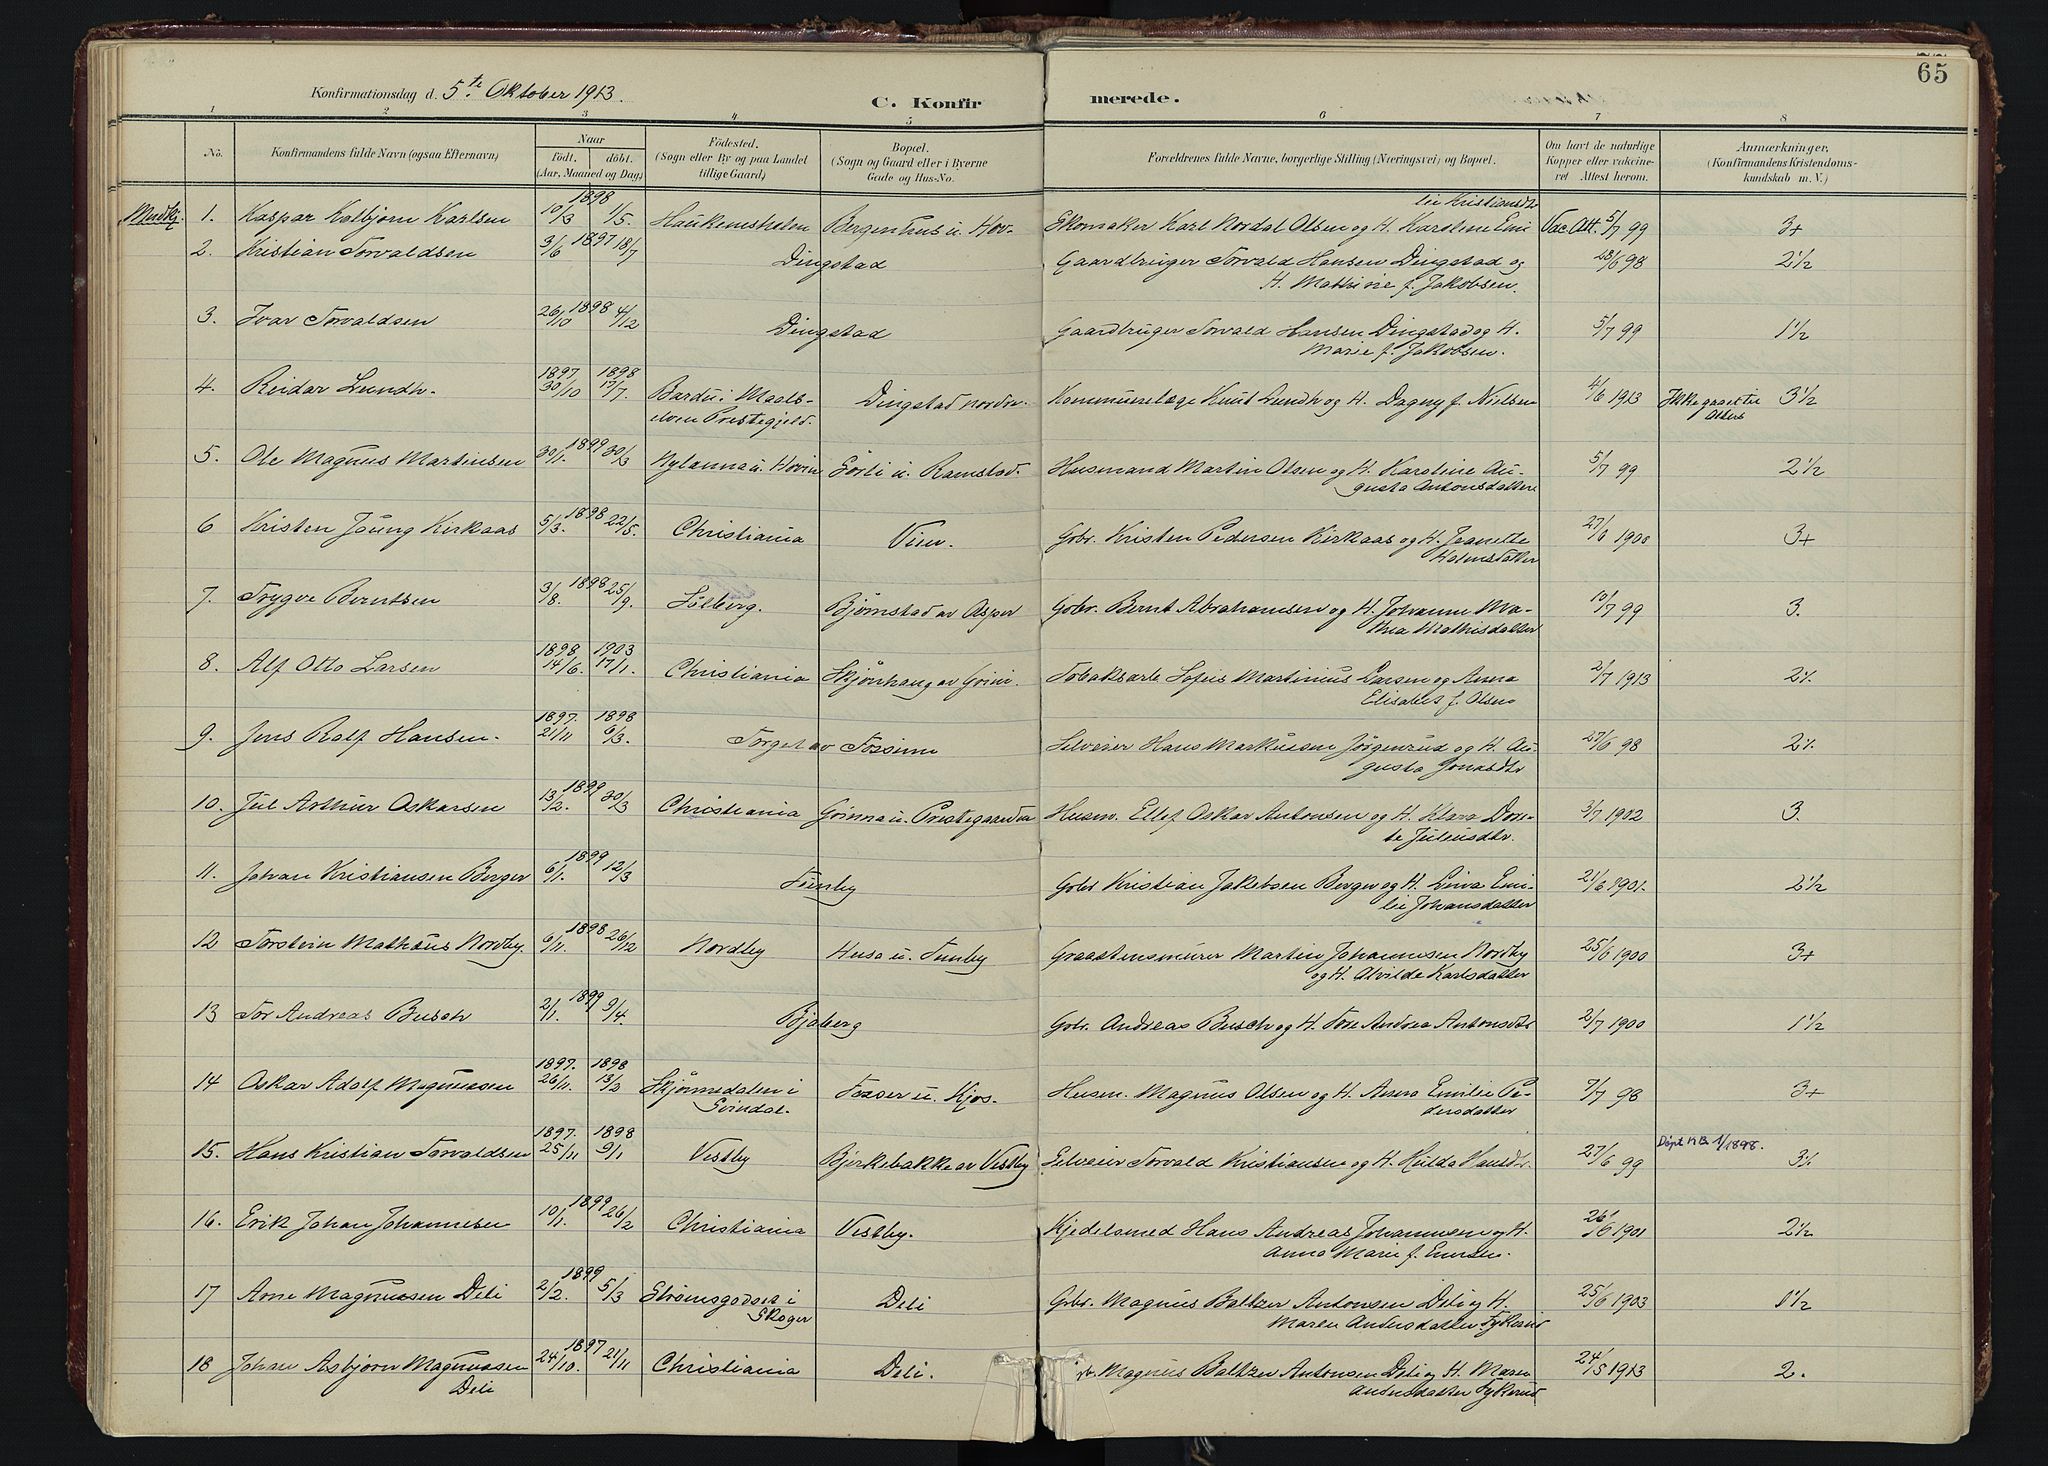 65
Konfirmationsdag d. 5te Oktober 1913.
C. Konfirmerede.
1 2 3 4 5 6 7 8
No. Konfirmandens fulde Navn (ogsaa Efternavn)
Naar födt. döbt. (Aar, Maaned og Dag)
Födested. (Sogn eller By og paa Landet tillige Gaard)
Bopæl. (Sogn og Gaard eller i Byerne Gade og Hus-No.
Forældrenes fulde Navne, borgerlige Stilling (Næringsvei) og Bopæl.
Om havt de naturlige Kopper eller vakcineret Attest herom.
Anmærkninger. (Konfirmandens Kristendomskundskab m. V.)
1. Kaspar Kolbjörn Karlsen 1898 10/3 1/5. Bergenhus u. Hov. Skomaker Karl Nordal Olsen og H. Karoline Emilie Kristiansdtr Vac. Att. 5/7 99 3+
2. Kristian Torvaldsen 3/6 1897 18/7 Dingstad Gaardbruger Torvald Hansen Dingstad og 28/6 98 2 1/2
H. Mathine f. Jakobsen.
3. Ivar Torvaldsen 26/10 1898 4/12 Dingstad Gaardbruger Torvald Hansen Dingstad og H. 5/7 99 1 1/2
Marie f. Jakobsen.
4. Reidar Lundh. 1897 30/10 1898 17/7. Bardu i Maalselven Prestegjeld. Dingstad nordre. Kommunelæge Knut Lundh og H. Dagny f. Nielsen 4/6 1913 Ikke gaaet til Alters 3 1/2
5. Ole Magnus Martinsen 30/1. 1899 30/3 Nylanna u. Hovin Sörli u. Ramstad. Husmand Martin Olsen og H. Karoline Au- 5/7 99 2 1/2
gusta Antonsdatter
6 Kristen Joung Kirkaas 5/3. 1898 22/5. Christiania Veien. Gbr. Kristen Pedersen Kirkaas og H. Jeanette 27/6 1900 3+
Holmsdatter
7. Trygve Berntsen 3/8. 1898 25/9. Solberg. Björnstad av Asper Gbr. Bernt Abrahamsen og H. Johanne Ma- 10/7 99 3.
thea Mathisdatter
8. Alf Otto Larsen 1898 14/6. 1903 17/1. Christiania Skjönhaug av Grini. Tobaksarb. Sofus Martinius Larsen og Anna 2/7 1913 2 1/2
Elisabet f. Olsen
9. Jens Ralf Hansen. 1897. 21/11 1898 6/3. Torget av Fossum Selveier Hans Markussen Jörgenrud og H. Au- 27/6 98 2 1/2
gusta Jonasdtr
10. Jul Arthur Oskarsen 13/2. 1899 30/3 Christiania Grinna u. Prestegaarden Husm. Ellef Oskar Antonsen og H. Klara Dor- 3/7 1902 3.
te Juliusdtr.
11. Johan Kristiansen Berger 6/1. 1899 12/3 Tomby Gbr Kristian Jakobsen Berger og H. Lina Emi- 21/6 1901. 2 1/2
lie Johansdatter
12 Torstein Mathäus Nordby. 6/11. 1898 26/12 Nordby Huso u. Tomby Graastensmurer Martin Johannesen Nordby 25/6 1900 3+
og H. Alvilde Karlsdatter
13 Tor Andreas Busch 2/1. 1899 9/4. Bjaberg Gbr. Andreas Busch og H. Tore Andrea Antonsdtr 2/7 1900 1 1/2
14 Oskar Adolf Magnussen 1897. 26/11. 1898 13/2 Skjönnedalen i Svindal. Fosser u. Kjos. Husm. Magnus Olsen og H. Anna Emilie Pe- 7/7 98 3+
dersdatter
15. Hans Kristian Torvaldsen 1897. 25/11 1898 9/1 Vestby Bjerkebakke av Vestby Selveier Torvald Kristiansen og H. Hulda Hansdtr. 27/6 99 Döpt KB 1/1898. 3 1/2
16. Erik Johan Johannesen 10/1. 1899 26/2 Christiania Vestby. Kjedelsmed Hans Andreas Johannesen og H. 26/6 1901 2 1/2
Anna Marie f. Emsen.
17 Arne Magnussen Deli 2/2. 1899 5/3 Strömsgodset i Skoger Deli Gbr. Magnus Baltzer Antonsen Deli og H. 25/6 1903 1 1/2
Maren Andersdatter Tykerud
18 Johan Asbjörn Magnussen Deli 24/10. 1897 21/11 Christiania Deli. Magnus Baltzer Antonsen Deli og H. Maren 24/5 1913 2.
Andersdatter Tykerud